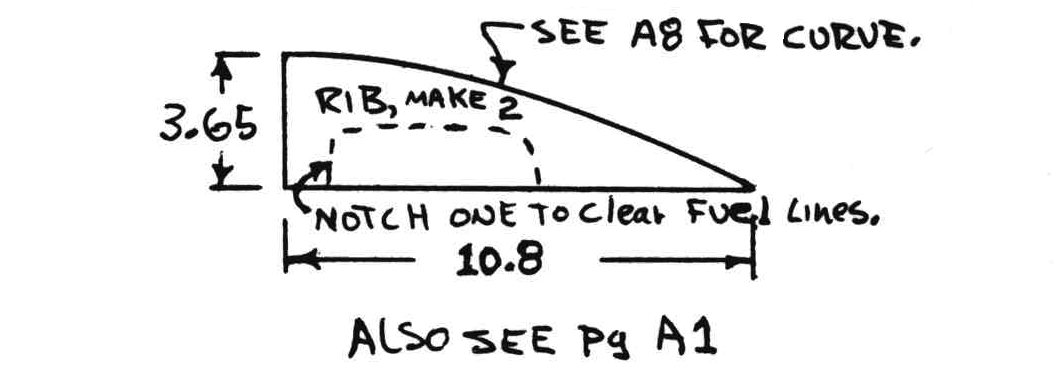 SEE A8 FOR CURVE.
RIB, MAKE 2
3.65
NOTCH ONE TO Clear FUEl LINES.
10.8
ALSO SEE Pg A1